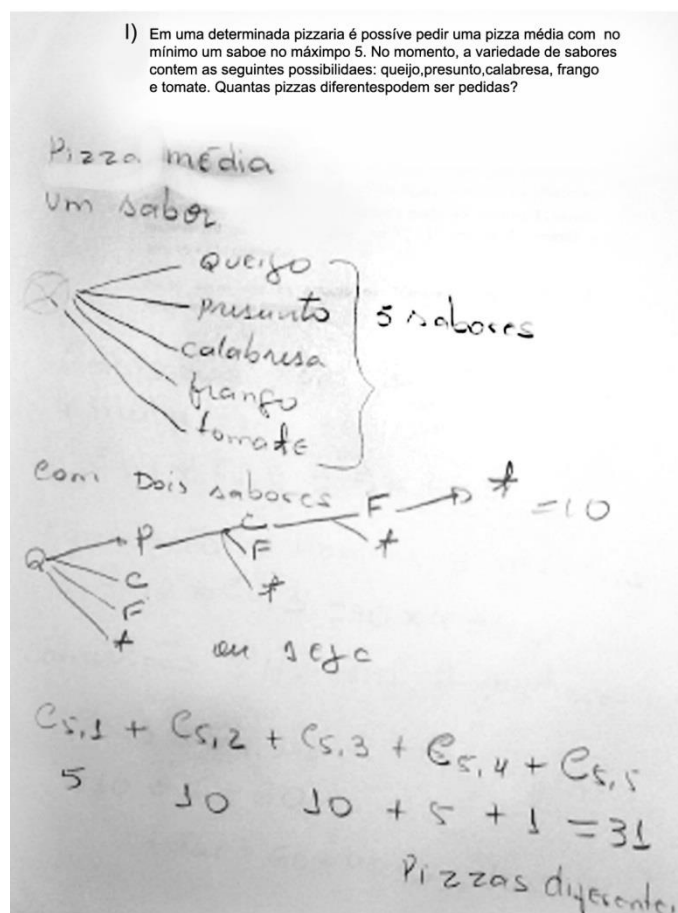 1) Em uma determinada pizzaria é possíve pedir uma pizza média com no
mínimo um saboe no máximpo 5. No momento, a variedade de sabores
contem as seguintes possibilidaes: queijo,presunto,calabresa, frango
e tomate. Quantas pizzas diferentespodem ser pedidas?
Pizza média
um sabor
Queijo
presunto
calabresa
frango
tomate
5 sabores
com Dois sabores
Q P C F t = 10
C F t
F t
t
ou seja
C5,1 + C5,2 + C5,3 + C5,4 + C5,5
5 10 10 + 5 + 1 = 31
Pizzas diferentes